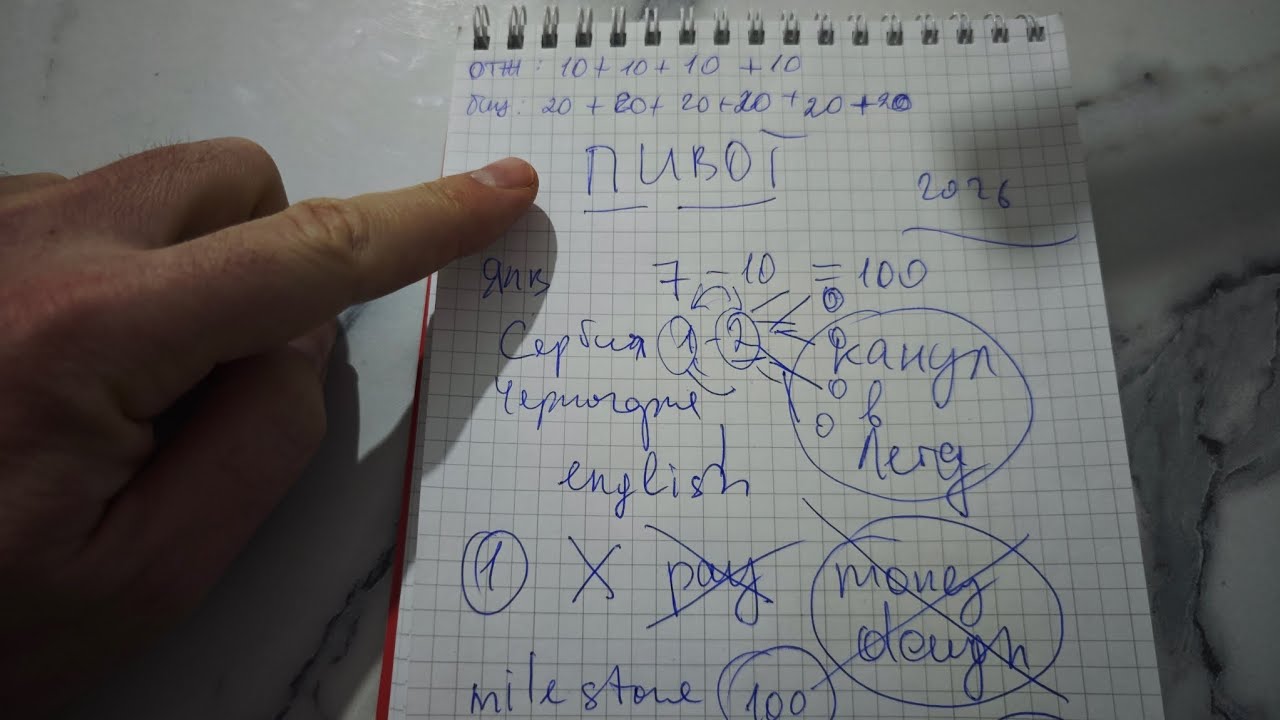 отж: 10+10+10+10
биц: 20+20+20+20+20+20
ПИВОТ
2026
7-10=100
Сербия 1-2
канул
Черногория
в
Лету
english
1 X pay money
dough
milestone 100